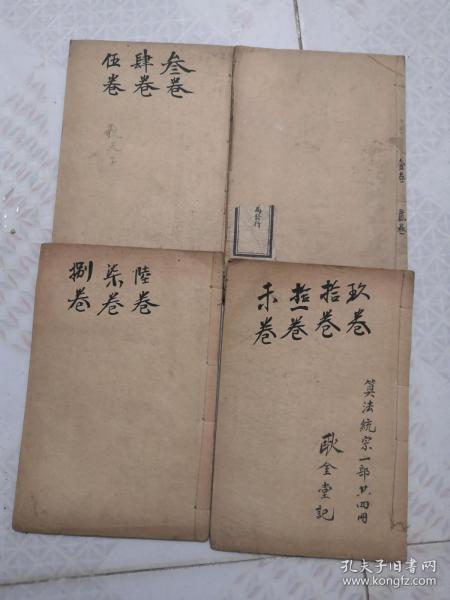 叁卷
肆卷
伍卷
壹卷
貳卷
陸卷
柒卷
捌卷
玖卷
拾卷
拾一卷
末卷
算法統宗一部共四冊
歐全堂記
孔夫子旧书网
www.kongfz.com